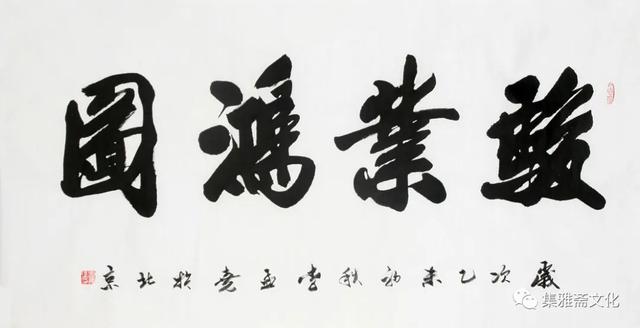 駿業鴻圖
歲次乙未初秋李孟堯於北京
集雅斋文化